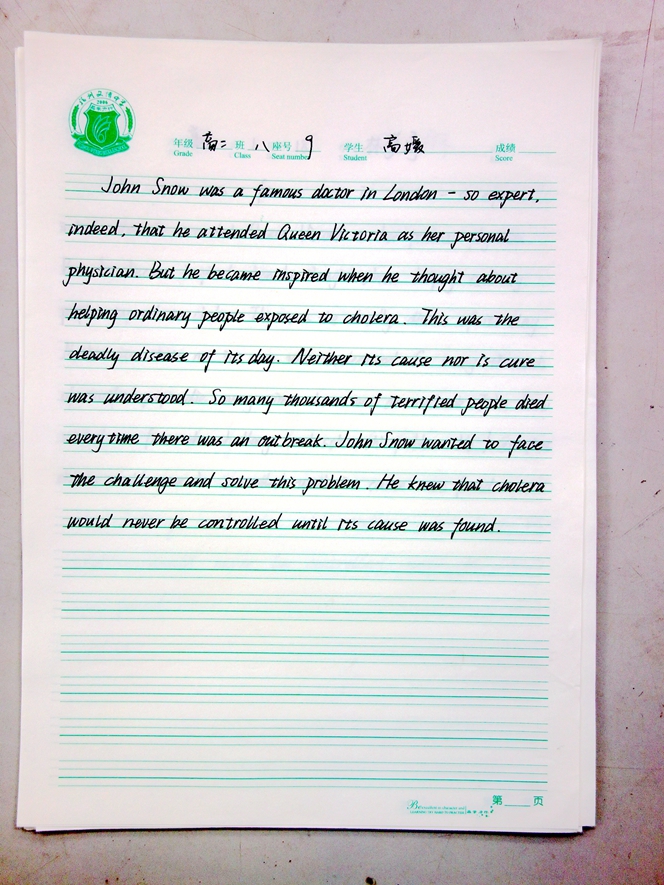 2006
年级 高二 班 八 座号 9 学生 高媛 成绩
Grade Class Seat number Student Score
John Snow was a famous doctor in London - so expert,
indeed, that he attended Queen Victoria as her personal
physician. But he became inspired when he thought about
helping ordinary people exposed to cholera. This was the
deadly disease of its day. Neither its cause nor is cure
was understood. So many thousands of terrified people died
every time there was an outbreak. John Snow wanted to face
the challenge and solve this problem. He knew that cholera
would never be controlled until its cause was found.
第 页